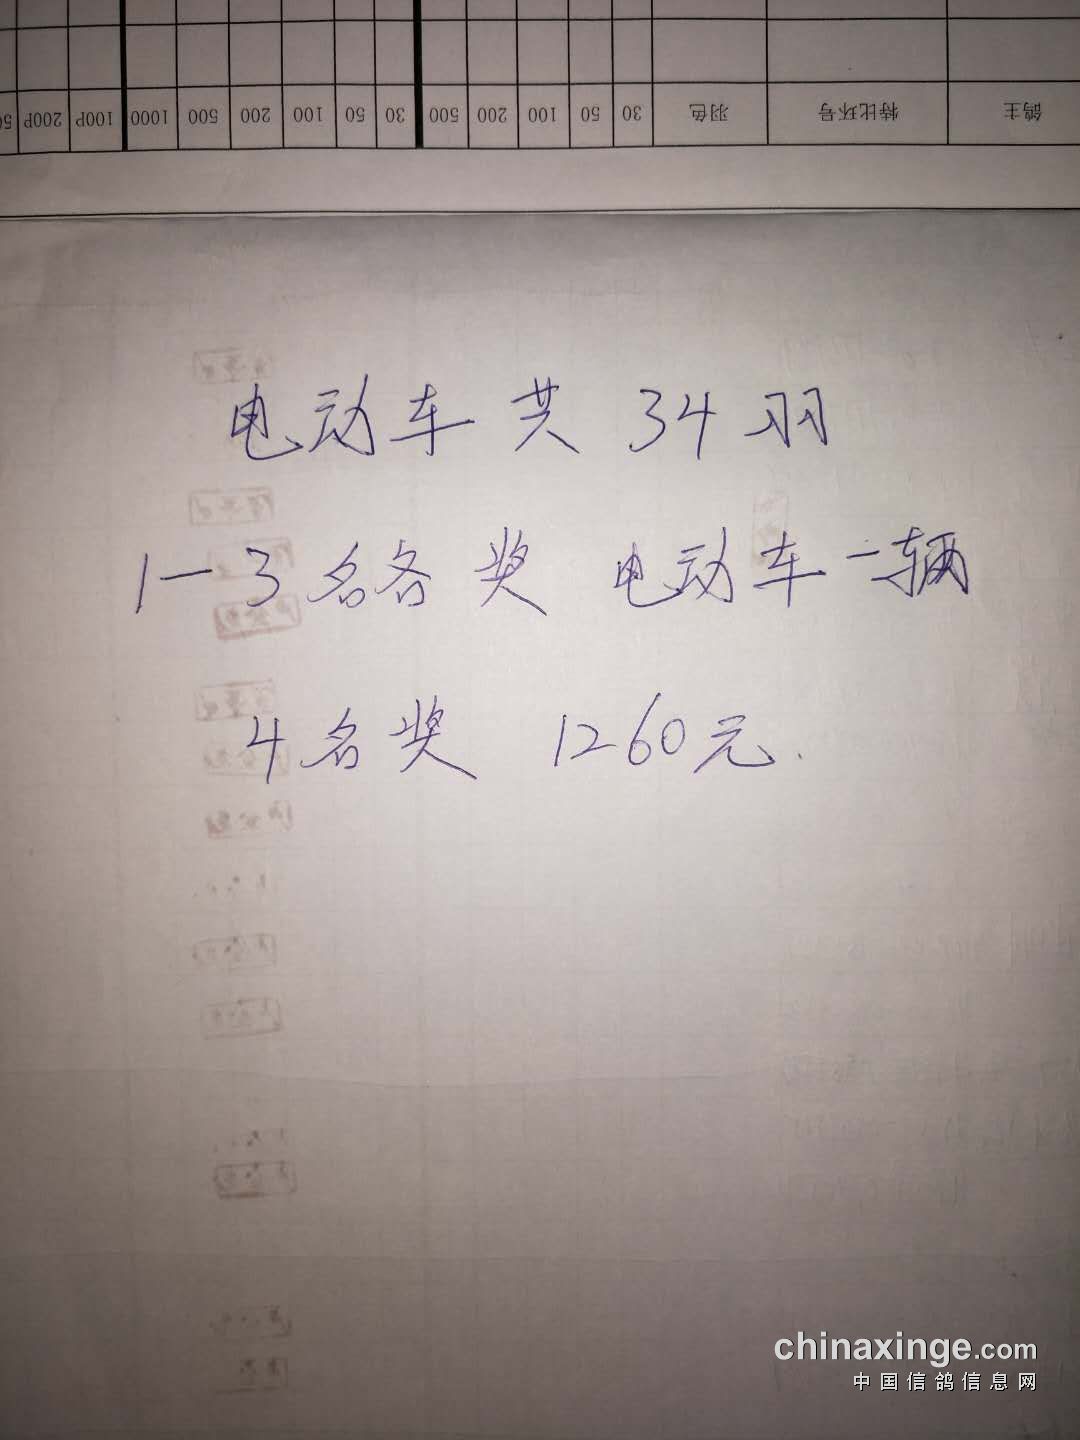 50 200P 100P 1000 500 200 100 50 30 500 200 100 50 30 羽色 特比环号 鸽主
电动车共 34羽
1一3名各奖 电动车一辆
4名奖 1260元.
chinaxinge.com
中国信鸽信息网